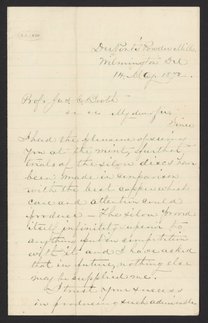 DuPont's Powder Mills
Wilmington Del
14th Ap. 1872
Prof. Jas C. Booth
My dear Sir
I had the pleasure of seeing
you at the mint, further
trials of the silver discs have
been made in comparison
with the best copper which
care and attention could
produce — The silver proved
itself infinitely superior to
anything put in competition
with it and I have asked
that in future, nothing else
may be supplied me.
I trust your success
in producing such admirable